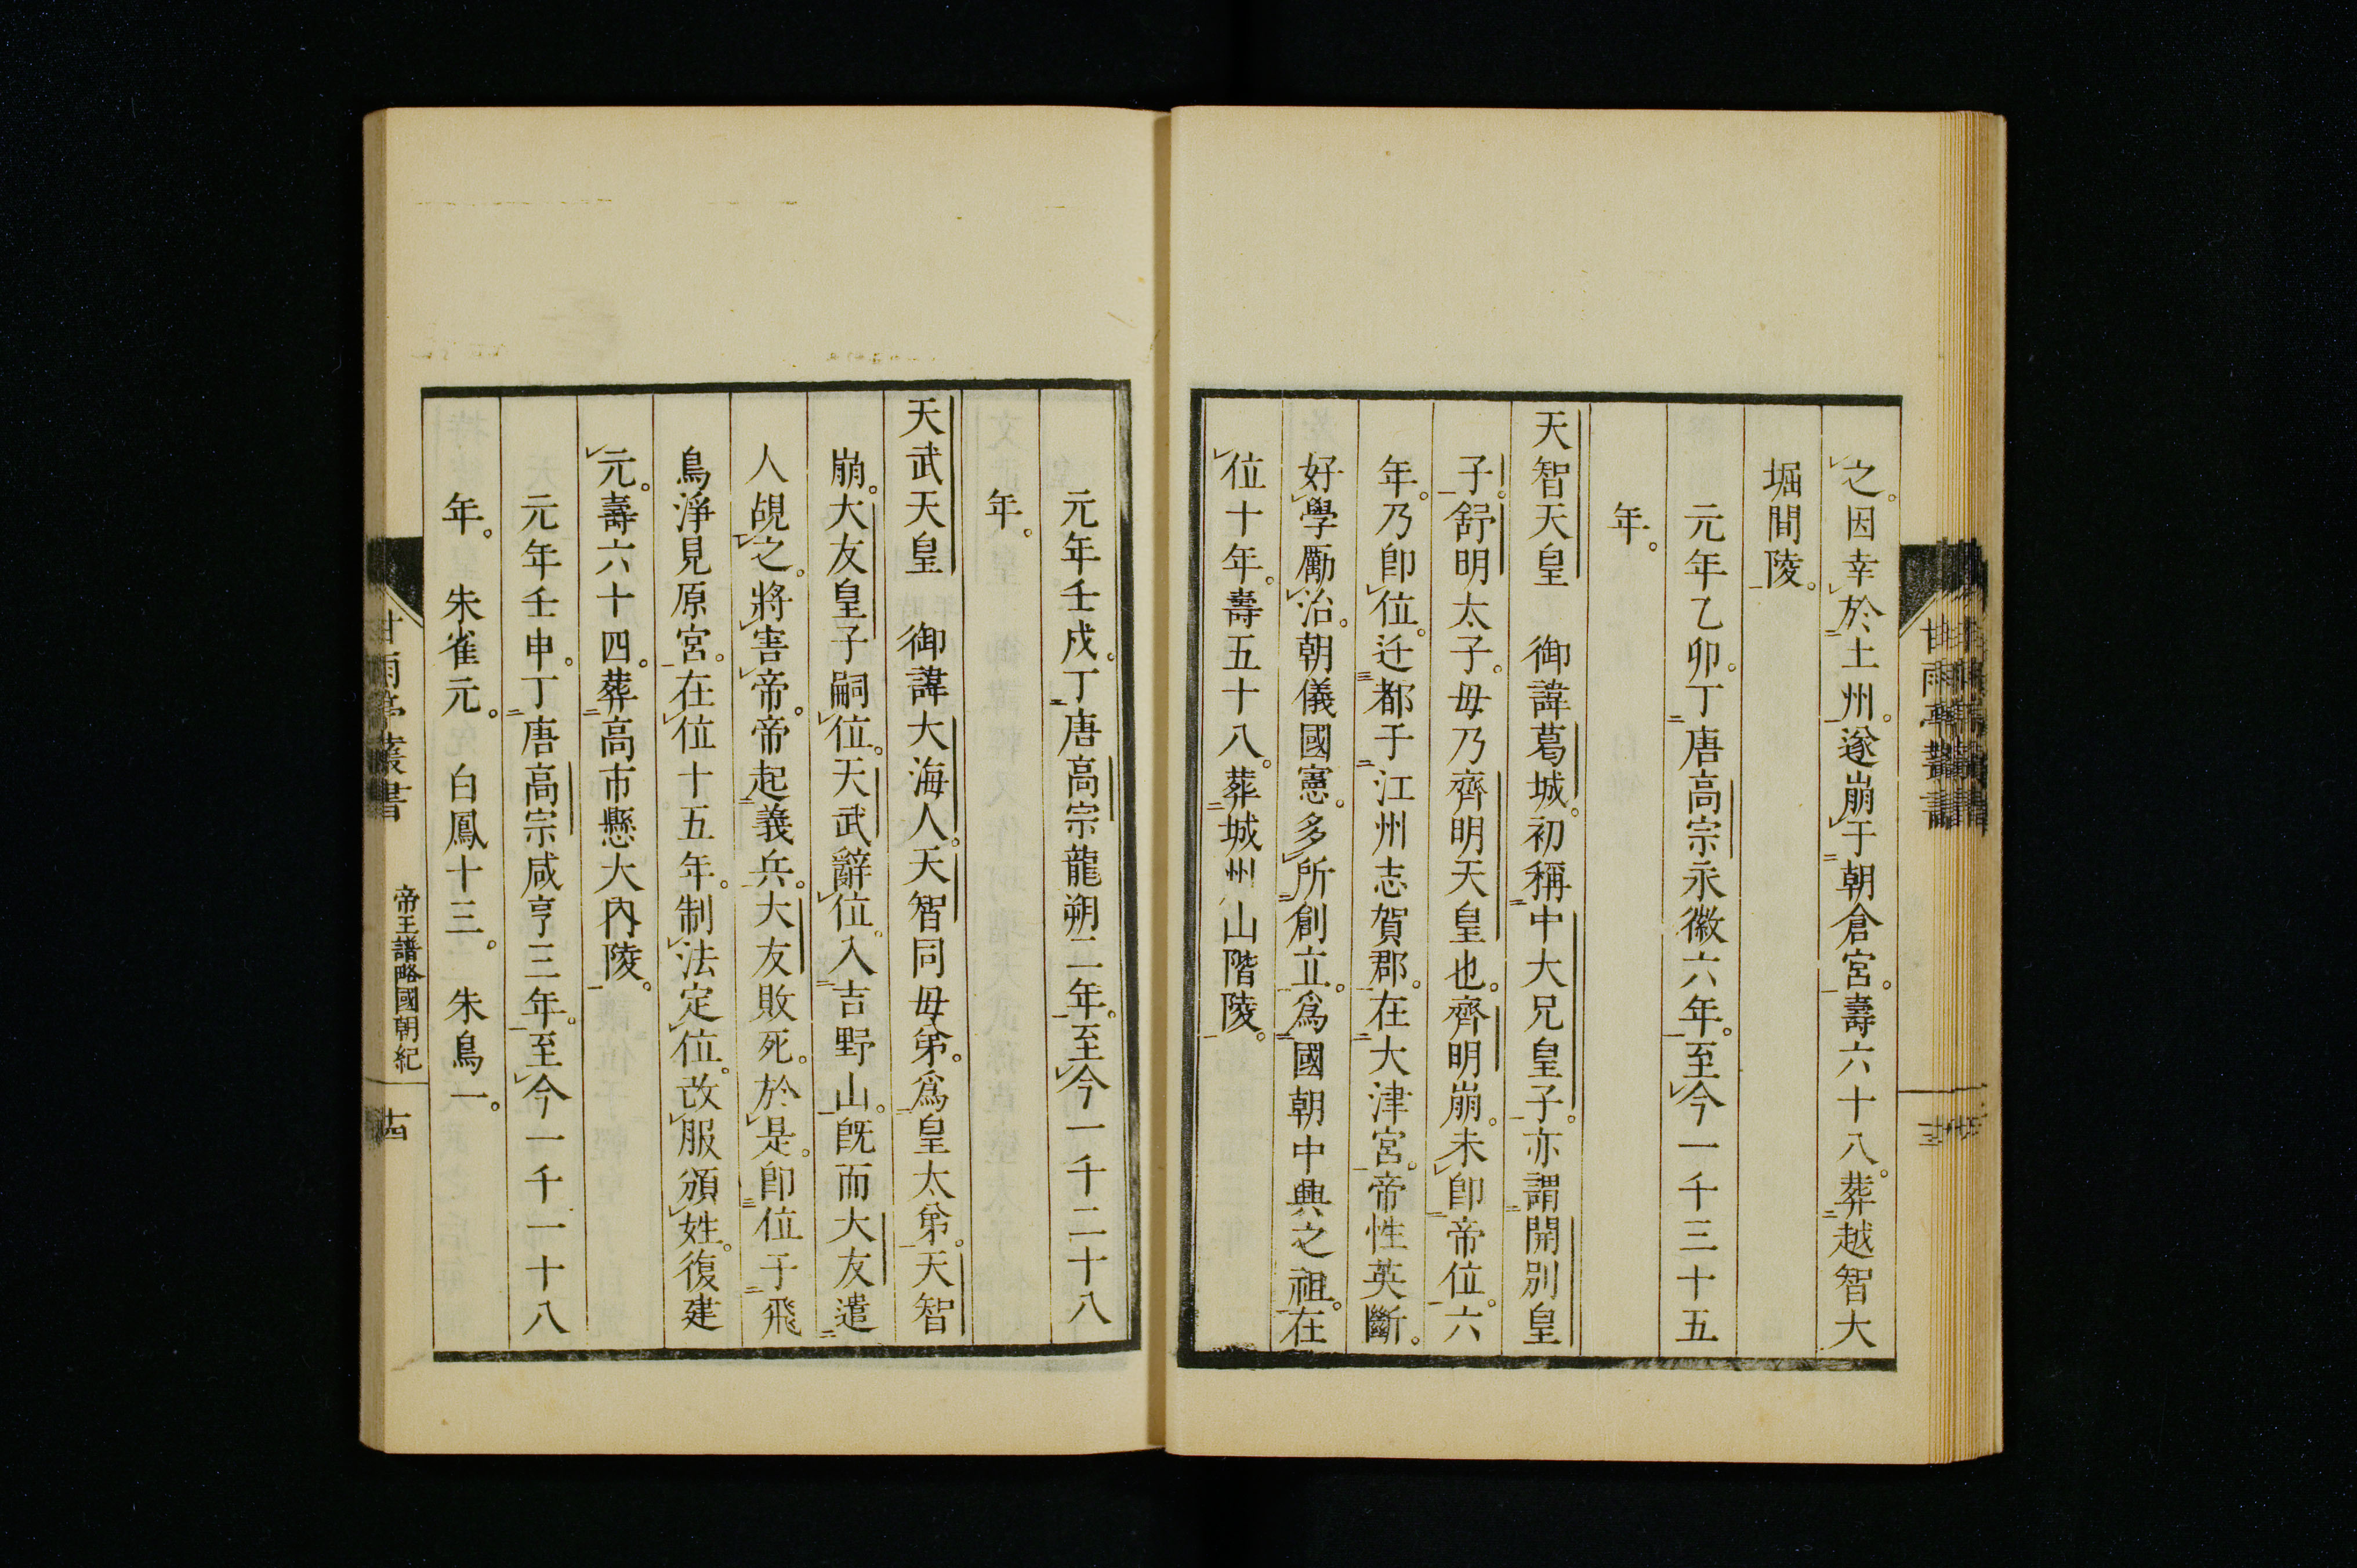 之。因幸於土州。遂崩于朝倉宮。壽六十八。葬越智大
堀間陵。
元年乙卯。丁唐高宗永徽六年。至今一千三十五
年。
天智天皇 御諱葛城。初稱中大兄皇子。亦謂開別皇
子。舒明太子。毋乃齊明天皇也。齊明崩。未卽帝位。六
年。乃卽位。迁都于江州志賀郡。在大津宮。帝性英斷。
好學勵治。朝儀國憲。多所創立。爲國朝中興之祖。在
位十年。壽五十八。葬城州山階陵。
元年壬戌。丁唐高宗龍朔二年。至今一千二十八
年。
天武天皇 御諱大海人。天智同毋弟。爲皇太弟。天智
崩。大友皇子嗣位。天武辭位。入吉野山。旣而大友遣
人覘之。將害帝。帝起義兵。大友敗死。於是。卽位于飛
鳥淨見原宮。在位十五年。制法定位。改服頒姓。復建
元。壽六十四。葬高市懸大內陵。
元年壬申。丁唐高宗咸亨三年。至今一千一十八
年。 朱雀元。 白鳳十三。 朱鳥一。
甘雨亭叢書 帝王譜略國朝紀 十四